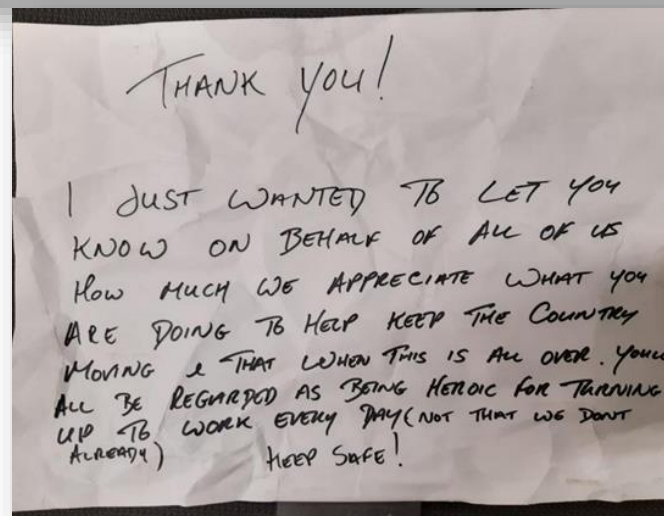 THANK YOU!
I JUST WANTED TO LET YOU
KNOW ON BEHALF OF ALL OF US
HOW MUCH WE APPRECIATE WHAT YOU
ARE DOING TO HELP KEEP THE COUNTRY
MOVING & THAT WHEN THIS IS ALL OVER. YOULL
ALL BE REGARDED AS BEING HEROIC FOR TURNING
UP TO WORK EVERY DAY (NOT THAT WE DONT
ALREADY) KEEP SAFE!